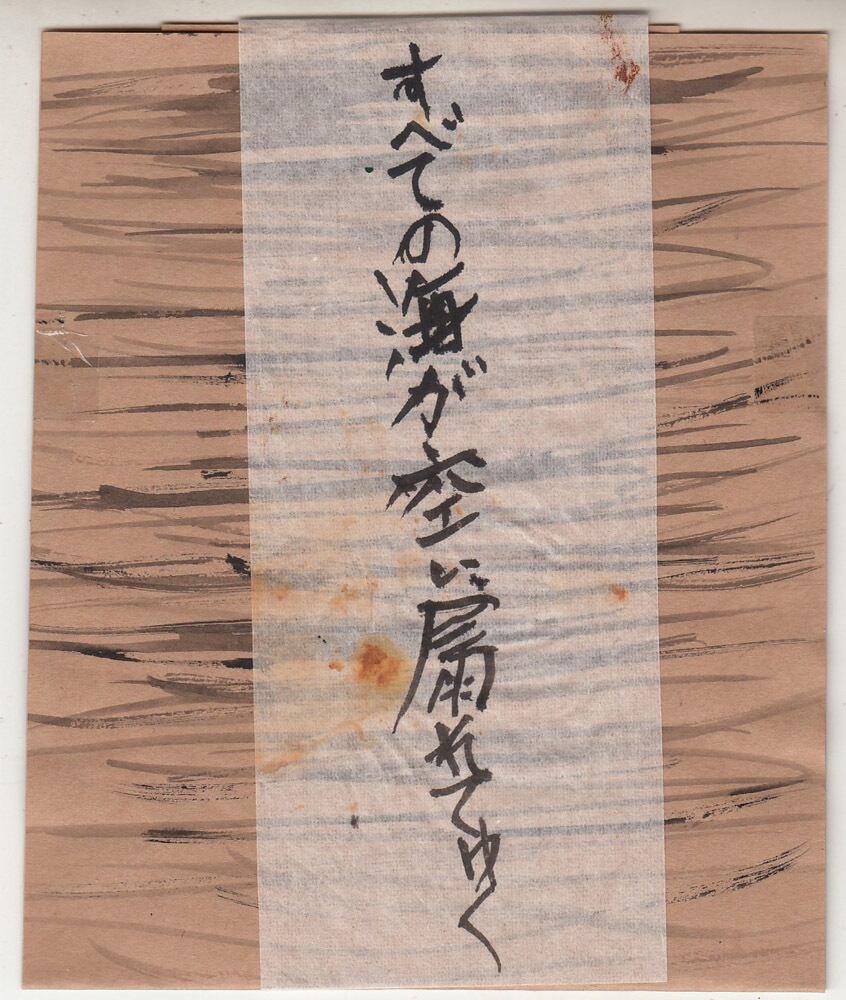 すべての海が空に屚れてゆく